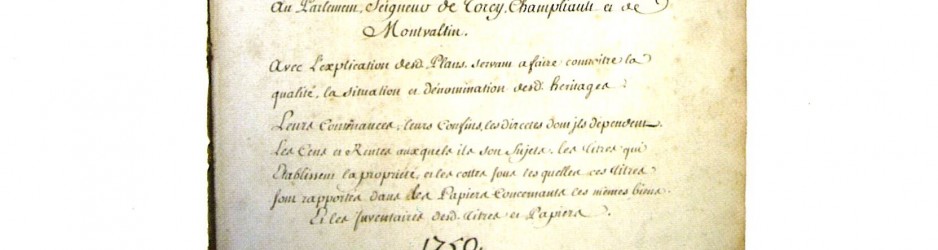 Au Parlement, Seigneur de Torcy, Champliault et de
Montvaltin.
Avec l'explication desd. Plans, servant a faire connoitre la
qualité, la situation et dénomination desd. heritages;
Leurs Contenances, leurs Confins, les directes dont jls dependent.
Les Cens et Rentes auxquels ils son Sujets, les titres qui
Etablissent la propriété, et les cottes sous les quelles ces titres
sont rapportés dans les Papiers Concernants les mêmes biens
Et les Inventaires desd. titres et Papiers.
1750.